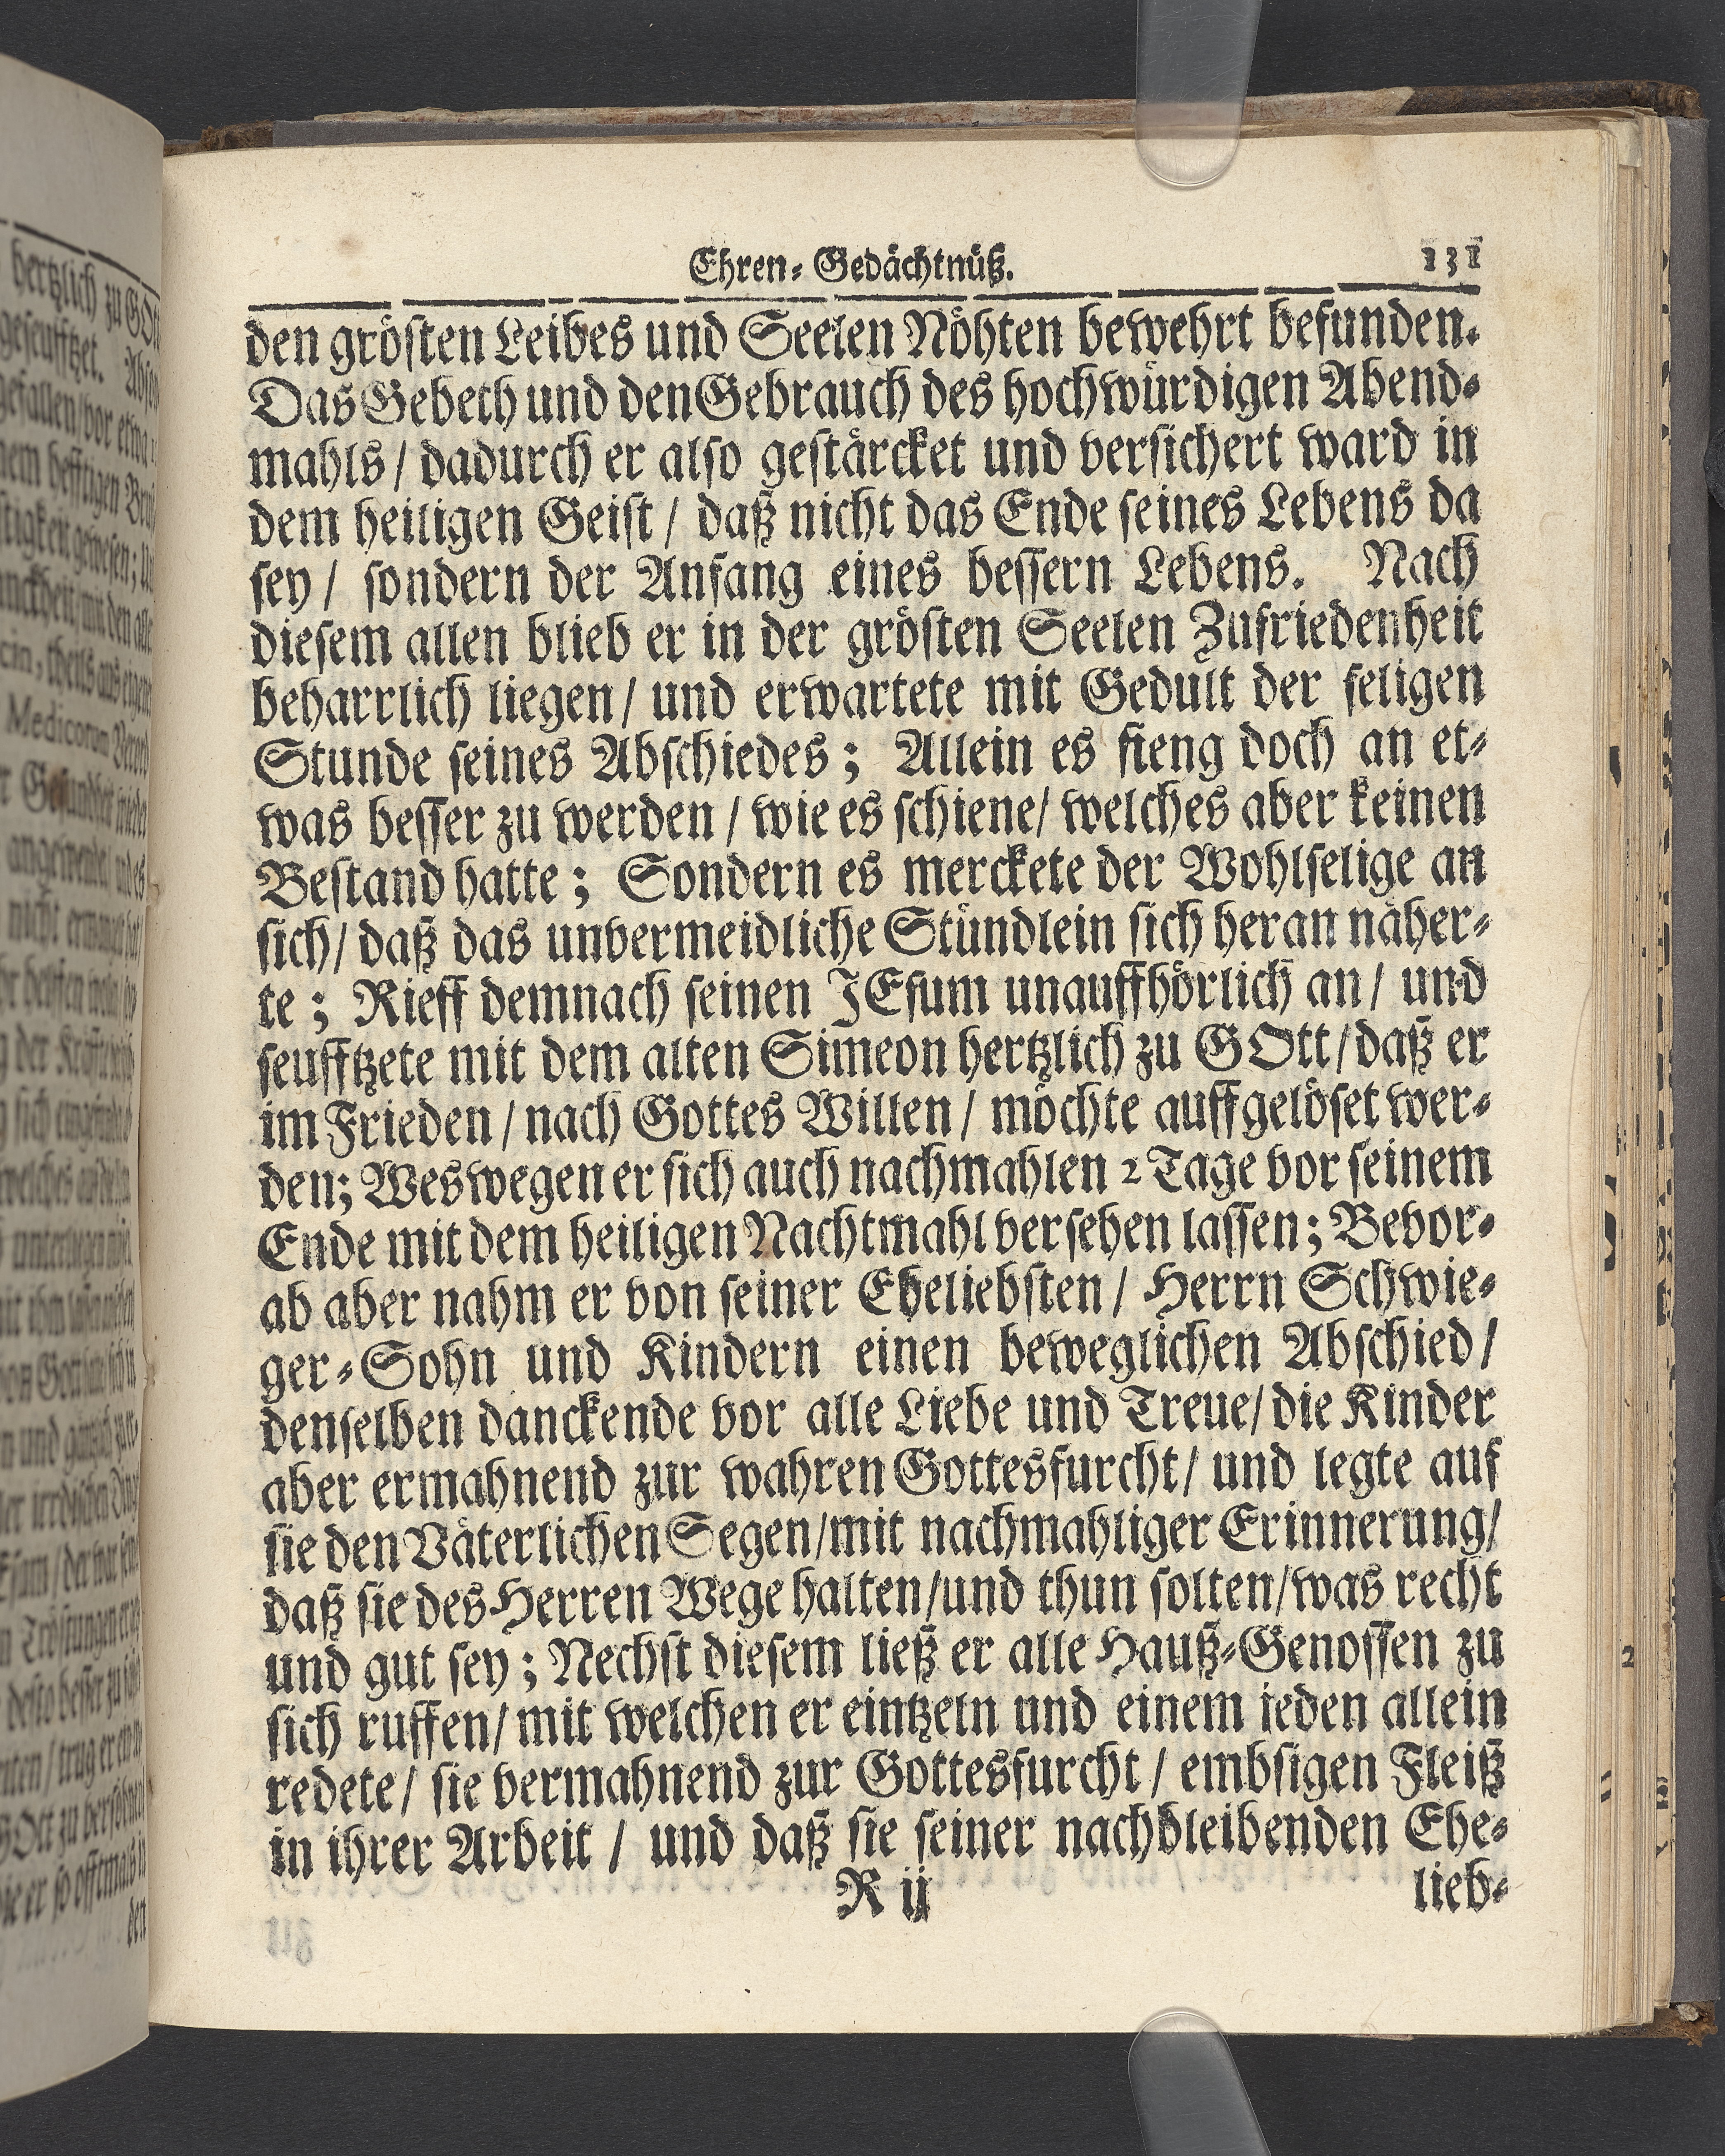 Ehren-Gedächtnüß. 131
den grösten Leibes und Seelen Nöhten bewehrt befunden.
Das Gebeth und den Gebrauch des hochwürdigen Abend-
mahls / dadurch er also gestärcket und versichert ward in
dem heiligen Geist / daß nicht das Ende seines Lebens da
sey / sondern der Anfang eines bessern Lebens. Nach
diesem allen blieb er in der grösten Seelen Zufriedenheit
beharrlich liegen / und erwartete mit Gedult der seligen
Stunde seines Abschiedes; Allein es fieng doch an et-
was besser zu werden / wie es schiene / welches aber keinen
Bestand hatte; Sondern es merckete der Wohlselige an
sich / daß das unvermeidliche Stündlein sich heran näher-
te; Rieff demnach seinen JEsum unauffhörlich an / und
seufftzete mit dem alten Simeon hertzlich zu GOtt / daß er
im Frieden / nach Gottes Willen / möchte auffgelöset wer-
den; Weswegen er sich auch nachmahlen 2 Tage vor seinem
Ende mit dem heiligen Nachtmahl versehen lassen; Bevor-
ab aber nahm er von seiner Eheliebsten / Herrn Schwie-
ger-Sohn und Kindern einen beweglichen Abschied /
denselben danckende vor alle Liebe und Treue / die Kinder
aber ermahnend zur wahren Gottesfurcht / und legte auf
sie den Väterlichen Segen / mit nachmahliger Erinnerung /
daß sie des Herren Wege halten / und thun solten / was recht
und gut sey; Nechst diesem ließ er alle Hauß-Genossen zu
sich ruffen / mit welchen er eintzeln und einem jeden allein
redete / sie vermahnend zur Gottesfurcht / embsigen Fleiß
in ihrer Arbeit / und daß sie seiner nachbleibenden Ehe-
R ij lieb-